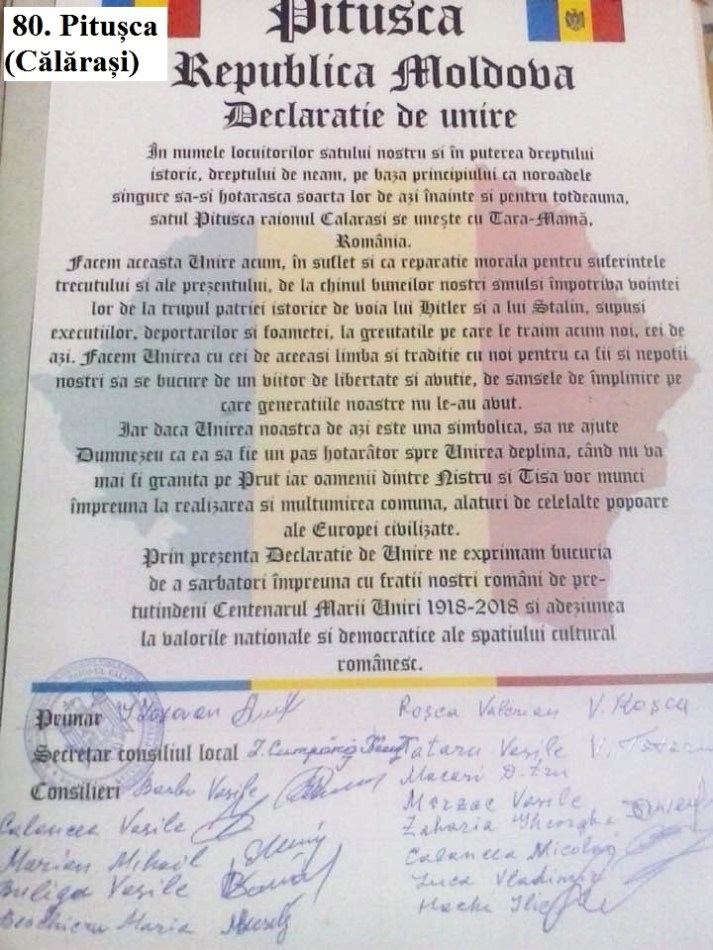 80. Pitușca
(Călărași)
Pitusca
Republica Moldova
Declaratie de unire
În numele locuitorilor satului nostru si în puterea dreptului
istoric, dreptului de neam, pe baza principiului ca noroadele
singure sa-si hotarasca soarta lor de azi înainte si pentru totdeauna,
satul Pitusca raionul Calarasi se unește cu Tara-Mamă,
România.
Facem aceasta Unire acum, în suflet si ca reparatie morala pentru suferintele
trecutului si ale prezentului, de la chinul buneilor nostri smulsi împotriba vointei
lor de la trupul patriei istorice de voia lui Hitler si a lui Stalin, supusi
executiilor, deportarilor si foametei, la greutatile pe care le traim acum noi, cei de
azi. Facem Unirea cu cei de aceeasi limba si traditie cu noi pentru ca fii si nepotii
nostri sa se bucure de un viitor de libertate si avutie, de sansele de împlinire pe
care generatiile noastre nu le-au avut.
Iar daca Unirea noastra de azi este una simbolica, sa ne ajute
Dumnezeu ca ea sa fie un pas hotarâtor spre Unirea deplina, când nu va
mai fi granita pe Prut iar oamenii dintre Nistru si Tisa vor munci
împreuna la realizarea si multumirea comuna, alaturi de celelalte popoare
ale Europei civilizate.
Prin prezenta Declaratie de Unire ne exprimam bucuria
de a sarbatori împreuna cu fratii nostri români de pre-
tutindeni Centenarul Marii Uniri 1918-2018 si adeziunea
la valorile nationale si democratice ale spatiului cultural
românesc.
Primar
Roșca Valerian V. Roșca
Secretar consiliul local
Tataru Vasile
Consilieri Barbu Vasile
Macari
Calancea Vasile
Vasile
Zaharia Gheorghe
Marian Mihail
Calancea Nicolae
Buliga Vasile
Luca Vladimir
Maria
Ilie